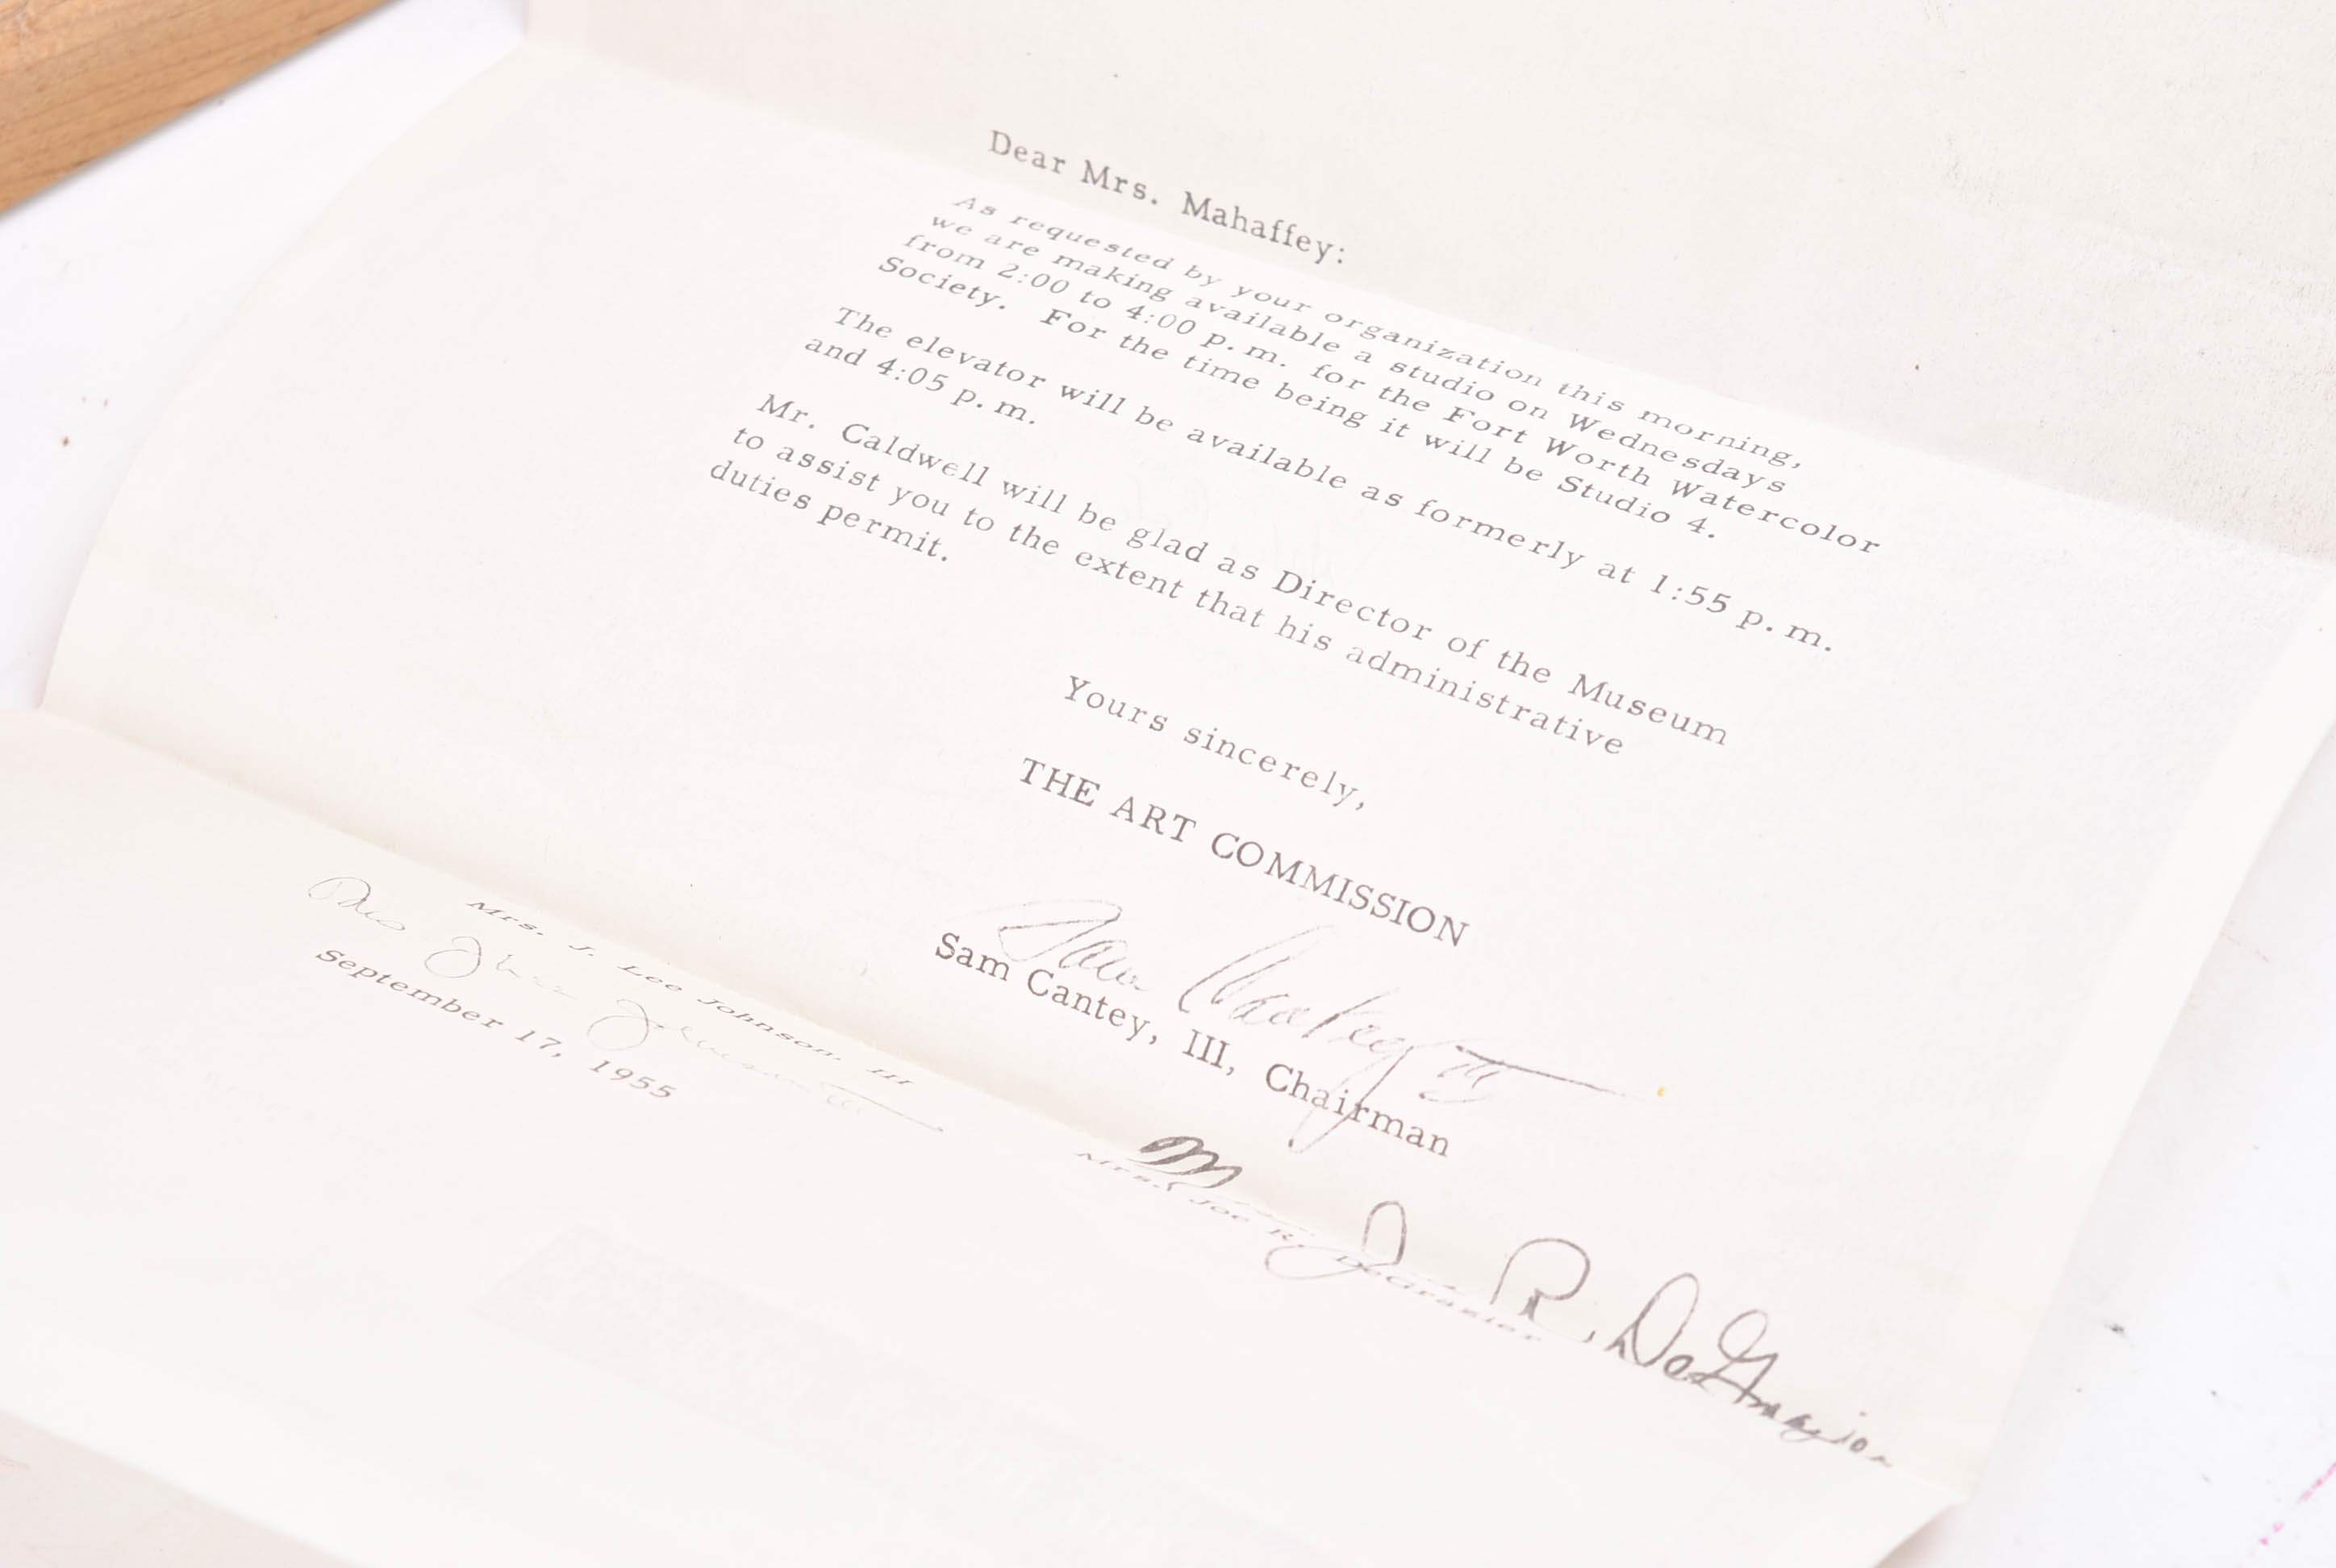 Dear Mrs. Mahaffey:
As requested by your organization this morning,
we are making available a studio on Wednesdays
from 2:00 to 4:00 p.m. for the Fort Worth Watercolor
Society. For the time being it will be Studio 4.
The elevator will be available as formerly at 1:55 p.m.
and 4:05 p.m.
Mr. Caldwell will be glad as Director of the Museum
to assist you to the extent that his administrative
duties permit.
Yours sincerely,
THE ART COMMISSION
Sam Cantey III
Sam Cantey, III, Chairman
Mrs. J. Lee Johnson, III
September 17, 1955
J. R. DeGrazier
Mrs. Joe R. DeGrazier